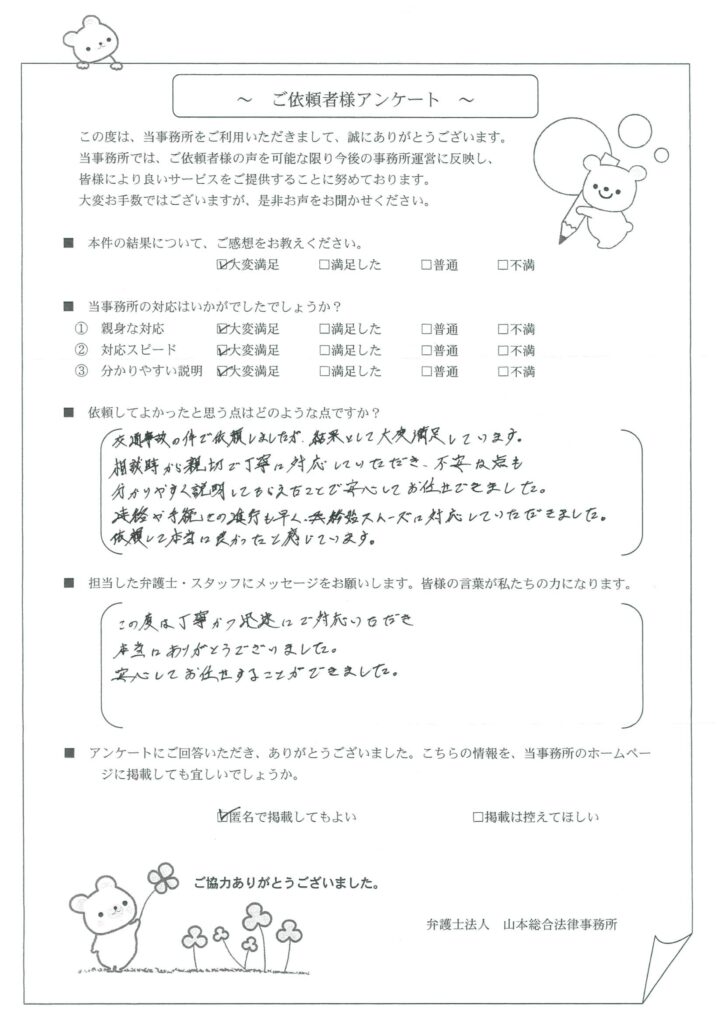 ～　ご依頼者様アンケート　～
この度は、当事務所をご利用いただきまして、誠にありがとうございます。
当事務所では、ご依頼者様の声を可能な限り今後の事務所運営に反映し、
皆様により良いサービスをご提供することに努めております。
大変お手数ではございますが、是非お声をお聞かせください。
■　本件の結果について、ご感想をお教えください。
☑大変満足　□満足した　□普通　□不満
■　当事務所の対応はいかがでしたでしょうか？
①　親身な対応　☑大変満足　□満足した　□普通　□不満
②　対応スピード　☑大変満足　□満足した　□普通　□不満
③　分かりやすい説明　☑大変満足　□満足した　□普通　□不満
■　依頼してよかったと思う点はどのような点ですか？
交通事故の件で依頼しましたが、結果として大変満足しています。
相談時から親切で丁寧に対応していただき、不安な点も
分かりやすく説明してもらえたことで安心してお任せできました。
連絡や手続きの進行も早く、終始スムーズに対応していただきました。
依頼して本当に良かったと感じています。
■　担当した弁護士・スタッフにメッセージをお願いします。皆様の言葉が私たちの力になります。
この度は丁寧かつ迅速にご対応いただき
本当にありがとうございました。
安心してお任せすることができました。
■　アンケートにご回答いただき、ありがとうございました。こちらの情報を、当事務所のホームペー
ジに掲載しても宜しいでしょうか。
☑匿名で掲載してもよい　□掲載は控えてほしい
ご協力ありがとうございました。
弁護士法人　山本総合法律事務所